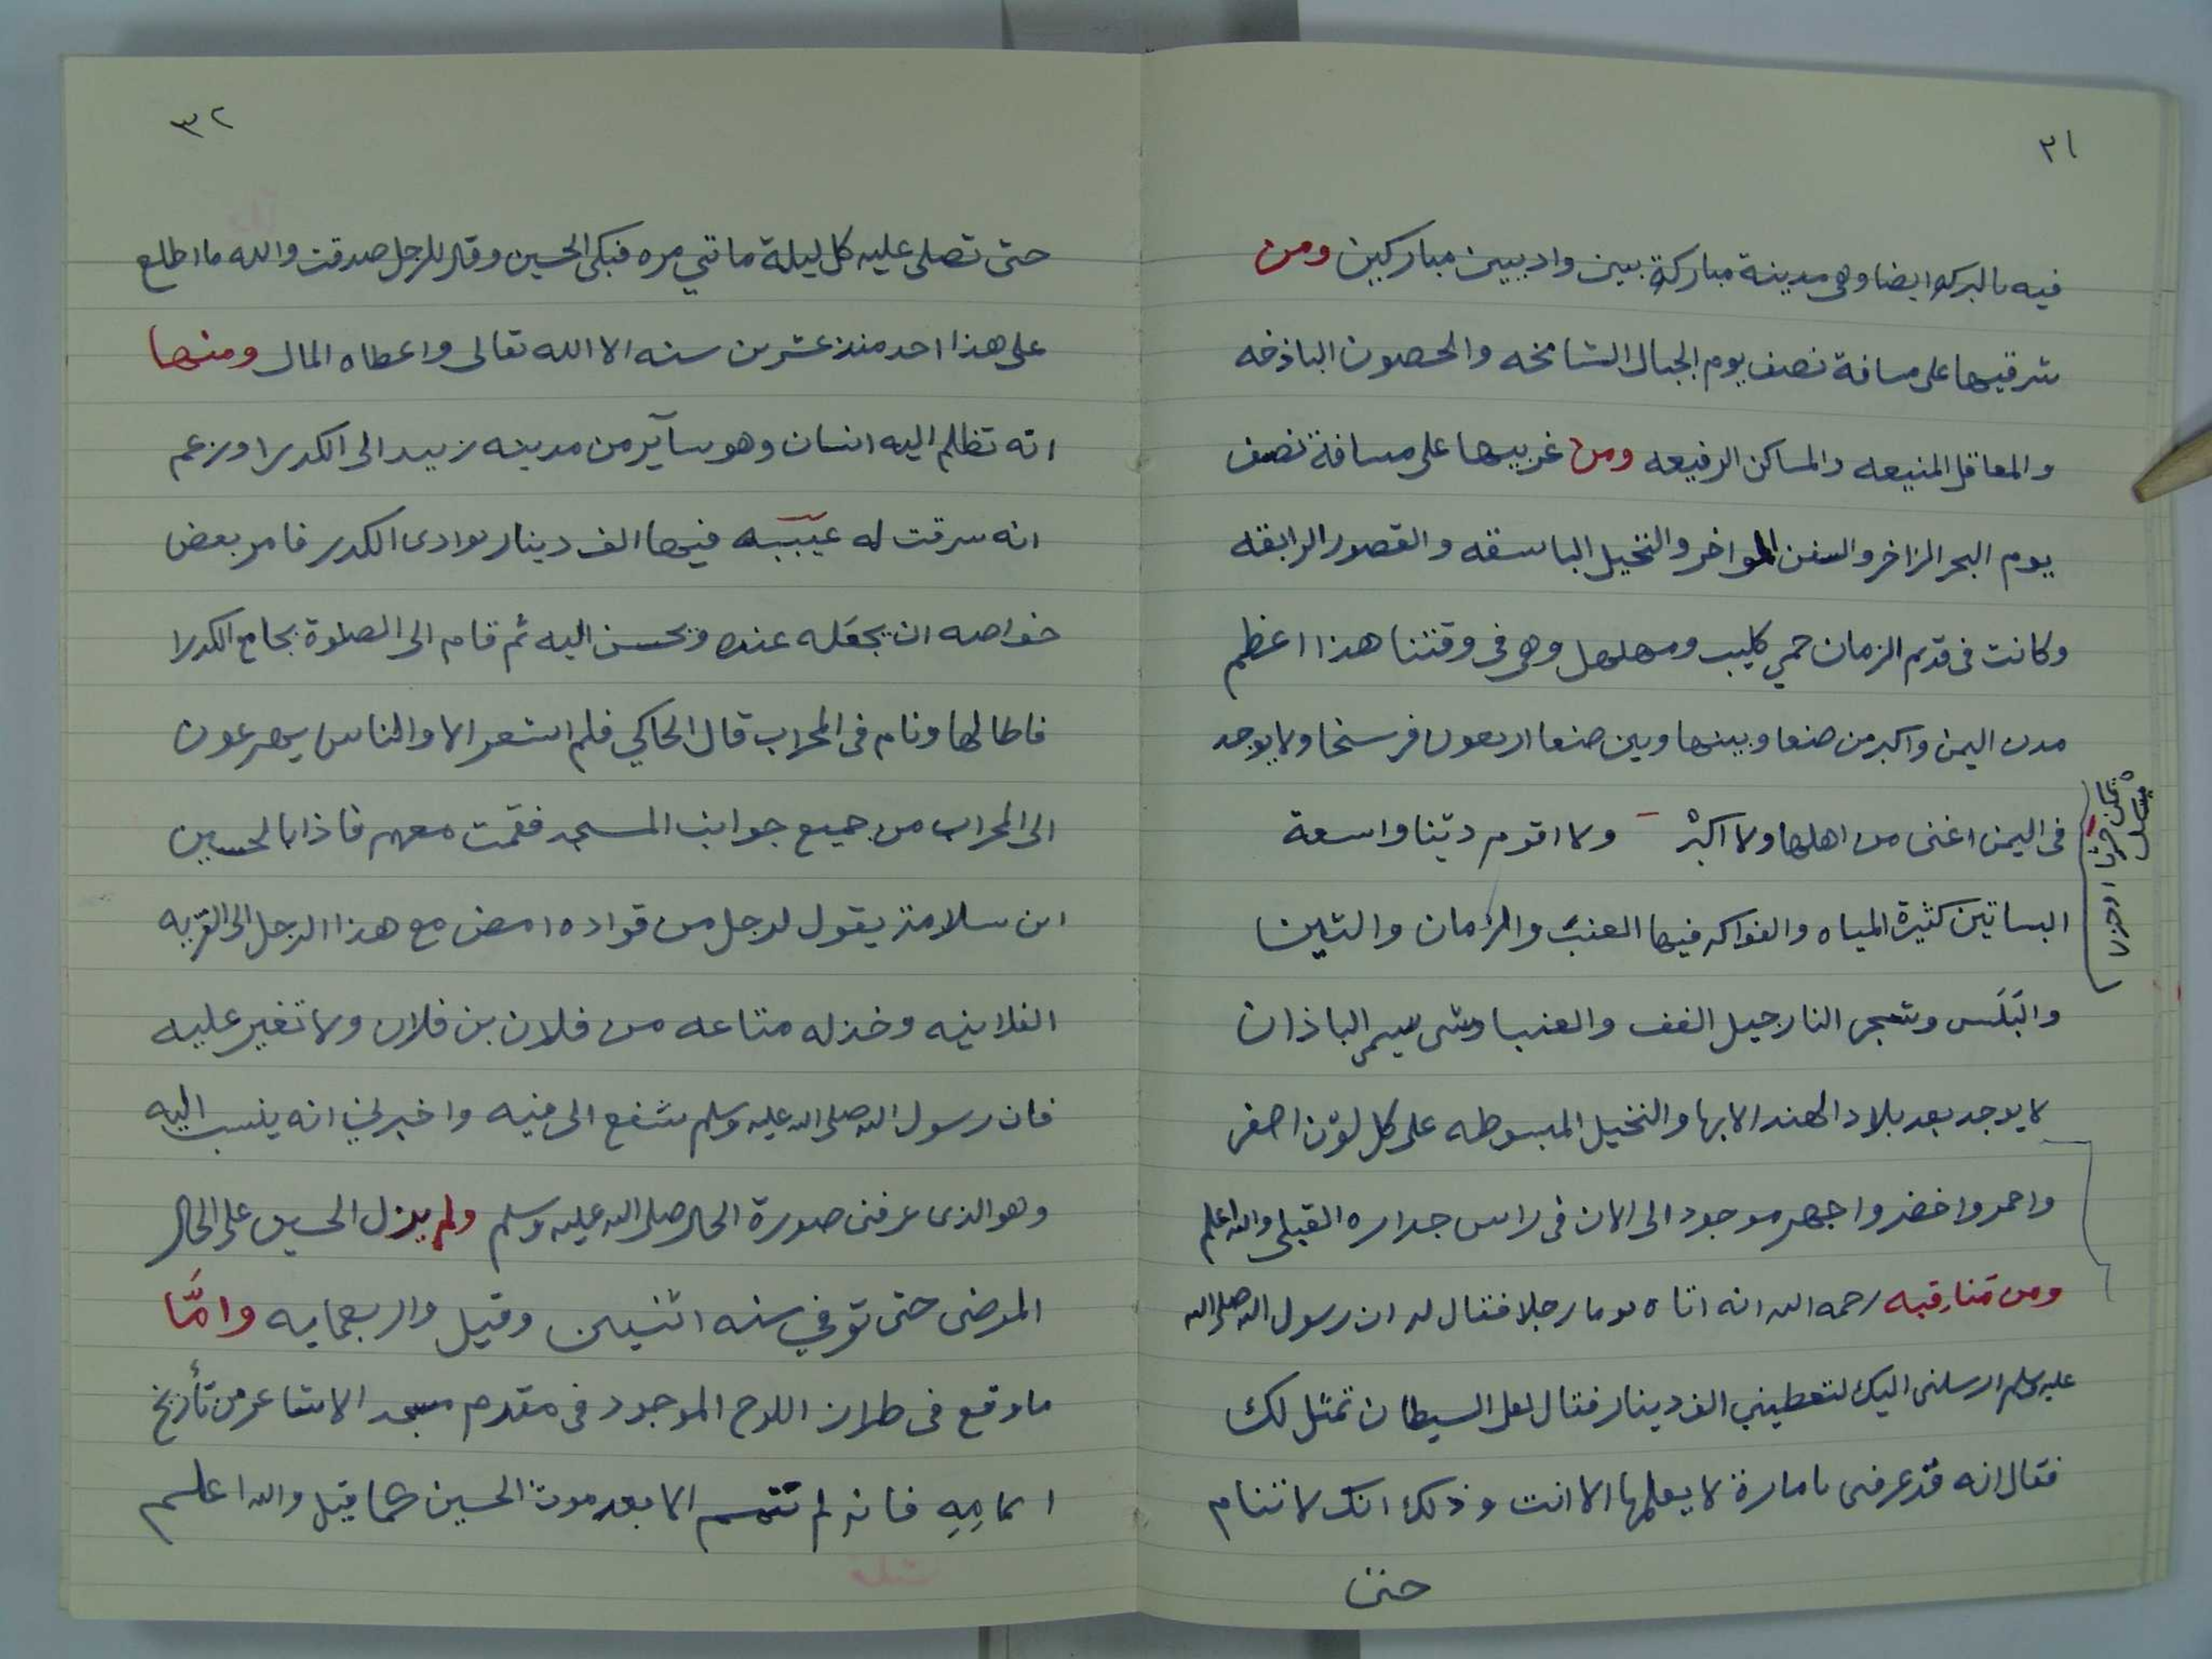 ٣١
فيه بالبركه ايضا وهى مدينة مباركة بين واديين مباركين ومن
شرقيها على مسافة نصف يوم الجبال الشامخه والحصون الباذخه
والمعاقل المنيعه والمساكن الرفيعه ومن غربيها على مسافة نصف
يوم البحر الزاخر والسفن المواخر والنخيل الباسقه والقصور الرايقه
وكانت فى قديم الزمان حمي كليب ومهلهل وهى فى وقتنا هذا اعظم
مدن اليمن واكبر من صنعا وبينها وبين صنعا اربعون فرسخا ولا يوجد
فى اليمن اغنى من اهلها ولا اكثر ولا اقوم دينا واسعة
البساتين كثيرة المياه والفواكه فيها العنب والرمان والتين
والبَلَس وشجر النارجيل الغف والعنبا وشى يسمى الباذان
لا يوجد بعد بلاد الهند الا بها والنخيل المبسوطه على كل لون اصفر
واحمر واخضر واجهر موجود الى الان فى راس جداره القبلى والله اعلم
ومن مناقبه رحمه الله انه اتاه يوما رجلا فقال له ان رسول الله صلى الله
عليه وسلم ارسلنى اليك لتعطيني الف دينار فقال لعل الشيطان تمثل لك
فقال انه قد عرفنى بامارة لا يعلمها الا انت وذلك انك لا تنام
حتى
٣٢
حتى تصلى عليه كل ليلة ماتي مره فبكى الحسين وقال للرجل صدقت والله ما اطلع
على هذا احد منذ عشرين سنه الا الله تعالى واعطاه المال ومنها
انه تظلم اليه انسان وهو سآير من مدينه زبيد الى الكدرا وزعم
انه سرقت له عيبه فيها الف دينار بوادى الكدر فامر بعض
خواصه ان يجعله عنده ويحسن اليه ثم قام الى الصلوة بجامع الكدرا
فاطالها ونام فى المحراب قال الحاكي فلم اشعر الا والناس يهرعون
الى المحراب من جميع جوانب المسجد فقمت معهم فاذا بالحسين
ابن سلامة يقول لرجل من قواده امض مع هذا الرجل الى القريه
الفلانيه وخذ له متاعه من فلان بن فلان ولا تغير عليه
فان رسول الله صلى الله عليه وسلم شفع الى فيه واخبرني انه ينسب اليه
وهو الذى عرفنى صورة الحال صلى الله عليه وسلم ولم يزل الحسين على الحال
المرضى حتى توفي سنه اثنين وقيل واربعمايه وامَّا
ما وقع فى طراز اللوح الموجود فى مقدم مسجد الاشاعر من تأريخ
فانه لم تتم الا بعد موت الحسين كما قيل والله اعلم